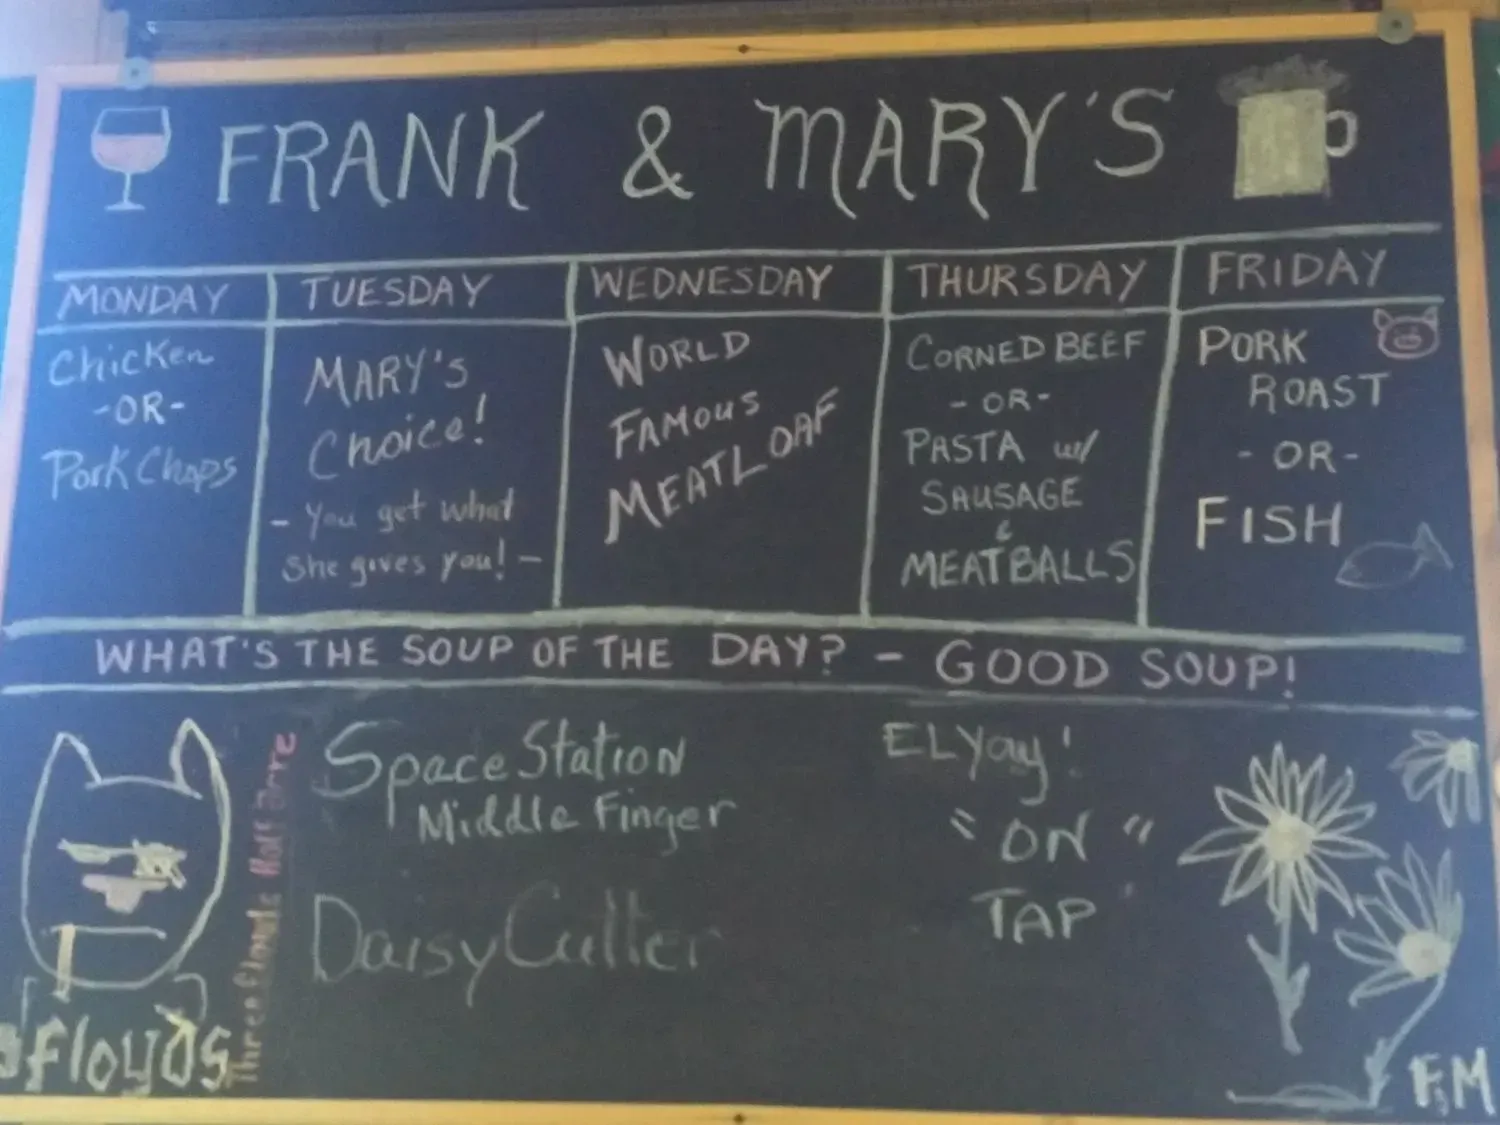 FRANK & MARY'S
MONDAY
Chicken
-OR-
Pork Chops
TUESDAY
MARY'S
Choice!
- You get what
she gives you! -
WEDNESDAY
WORLD
FAMOUS
MEATLOAF
THURSDAY
CORNED BEEF
- OR -
PASTA w/
SAUSAGE
&
MEATBALLS
FRIDAY
PORK
ROAST
- OR -
FISH
WHAT'S THE SOUP OF THE DAY? - GOOD SOUP!
floyds
Three floyds Half Acre
Space Station
Middle Finger
Daisy Cutter
ELYay!
"ON"
TAP
F&M